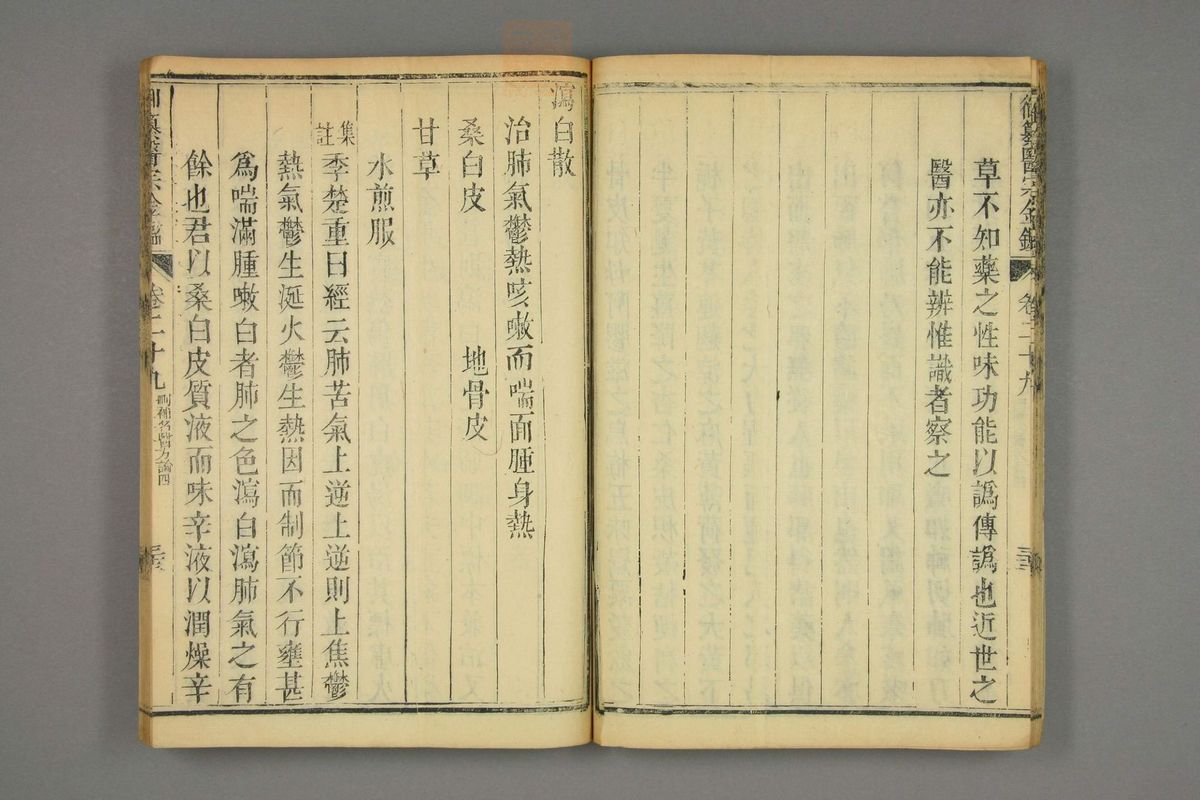 草不知藥之性味功能以譌傳譌也近世之
醫亦不能辨惟識者察之
瀉白散
治肺氣鬱熱咳嗽而喘面腫身熱
桑白皮 地骨皮
甘草
水煎服
集註 季楚重曰經云肺苦氣上逆上逆則上焦鬱
熱氣鬱生涎火鬱生熱因而制節不行壅甚
為喘滿腫嗽白者肺之色瀉白瀉肺氣之有
餘也君以桑白皮質液而味辛液以潤燥辛
纂醫宗金鑑 卷二十九 刪補名醫方論四